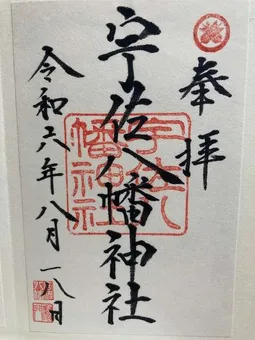 奉拝
宇佐八幡神社
令和六年八月一八日
宇佐八幡神社